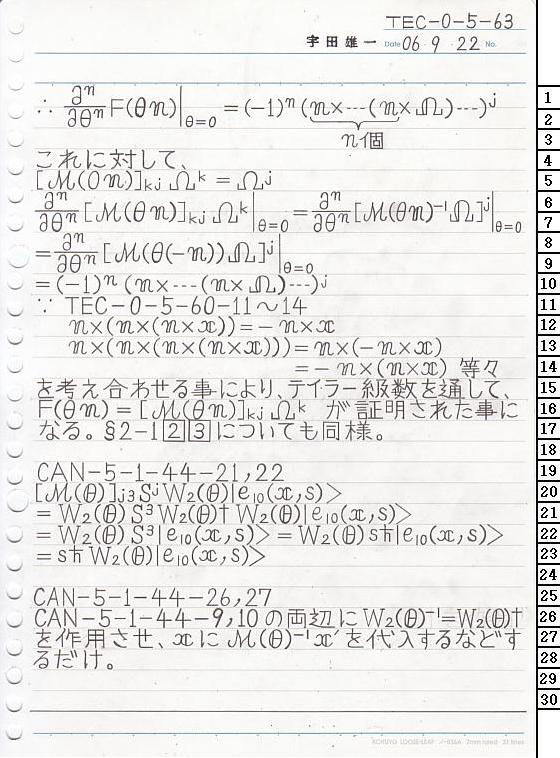 TEC-0-5-63
宇田雄一 Date 06・9・22 No.
∴ ∂ⁿ/∂θⁿ F(θn)|θ=0 = (-1)ⁿ (n×…(n×Ω)…)ʲ
n個
これに対して、
[M(0n)]kj Ωᵏ = Ωʲ
∂ⁿ/∂θⁿ [M(θn)]kj Ωᵏ|θ=0 = ∂ⁿ/∂θⁿ [M(θn)⁻¹Ω]ʲ|θ=0
= ∂ⁿ/∂θⁿ [M(θ(-n))Ω]ʲ|θ=0
= (-1)ⁿ (n×…(n×Ω)…)ʲ
∵ TEC-0-5-60-11～14
n×(n×(n×x)) = -n×x
n×(n×(n×(n×x))) = n×(-n×x)
= -n×(n×x) 等々
を考え合わせる事により、テイラー級数を通して、
F(θn) = [M(θn)]kj Ωᵏ が証明された事に
なる。§2-1 2 3 についても同様。
CAN-5-1-44-21,22
[M(θ)]j3 Sʲ W₂(θ)|e₁₀(x,s)>
= W₂(θ) S³ W₂(θ)† W₂(θ)|e₁₀(x,s)>
= W₂(θ) S³|e₁₀(x,s)> = W₂(θ) sħ|e₁₀(x,s)>
= sħ W₂(θ)|e₁₀(x,s)>
CAN-5-1-44-26,27
CAN-5-1-44-9,10 の両辺に W₂(θ)⁻¹=W₂(θ)†
を作用させ、xに M(θ)⁻¹x′ を代入するなどす
るだけ。
KOKUYO LOOSE-LEAF ノ-836A 7mm ruled 31 lines
1
2
3
4
5
6
7
8
9
10
11
12
13
14
15
16
17
18
19
20
21
22
23
24
25
26
27
28
29
30